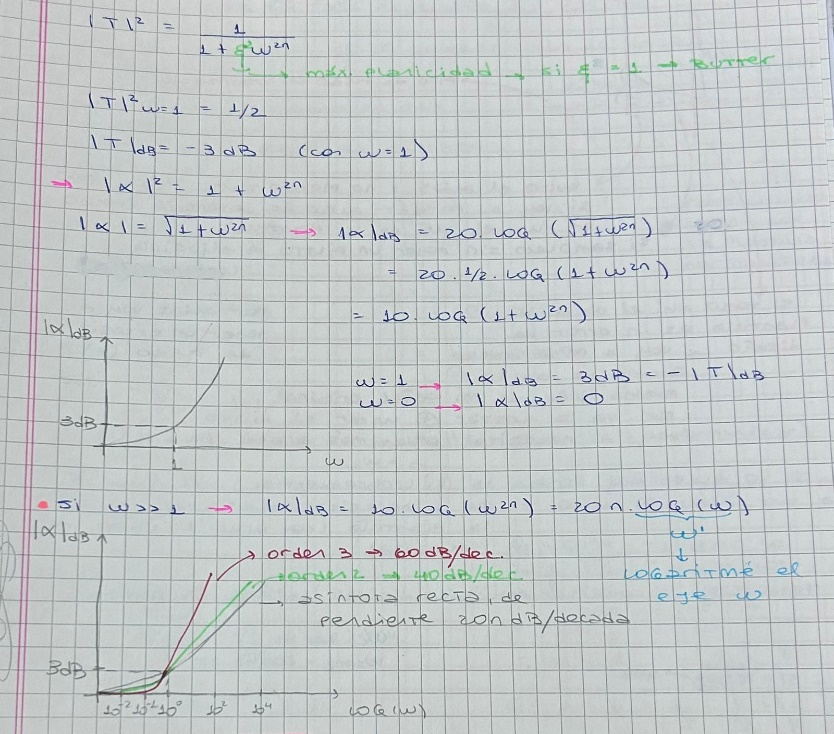 |T|² = 1 / (1 + ξ² ω²ⁿ)
→ máx. planicidad → si ξ = 1 → Butter
|T|² ω=1 = 1/2
|T|dB = -3 dB (con ω=1)
→ |α|² = 1 + ω²ⁿ
|α| = √(1+ω²ⁿ) → |α|dB = 20. LOG (√(1+ω²ⁿ))
= 20 . 1/2 . LOG (1+ω²ⁿ)
= 10. LOG (1+ω²ⁿ)
|α|dB
ω=1 → |α|dB = 3dB = -|T|dB
ω=0 → |α|dB = 0
3dB
1
ω
• Si ω>>1 → |α|dB = 10. LOG (ω²ⁿ) = 20 n. LOG (ω)
ω'
↓
LOGaritmé el
eje ω
|α|dB
→ orden 3 → 60dB/dec.
→ orden 2 → 40dB/dec
→ asíntota recta, de
pendiente 20n dB/década
3dB
10⁻² 10⁻¹ 10⁰ 10² 10⁴ LOG(ω)